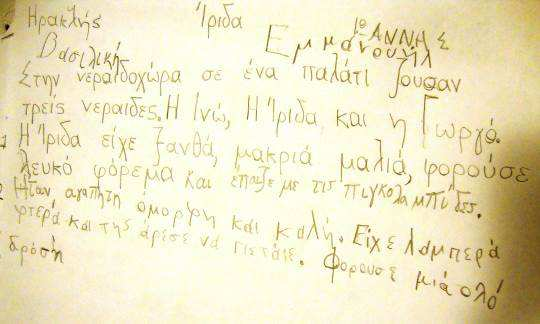 Ηρακλής Ίριδα ΙΩΑΝΝΑΣ
Βασιλική Εμμανουήλ
Στην νεραιδοχώρα σε ένα παλάτι ζουσαν
τρεις νεραιδες. Η Ινώ, Η Ίριδα, και η Γιωργό.
Η Ίριδα είχε ξανθά, μακριά μαλιά, φορούσε
λευκό φόρεμα και έπαιζε με τις πιγκολαμπίδες.
Ήταν αγαπητη όμορφη και καλή. Είχε λαμπερά
φτερά και της άρεσε να πετάει. Φορουσε μιά ολό
δροση